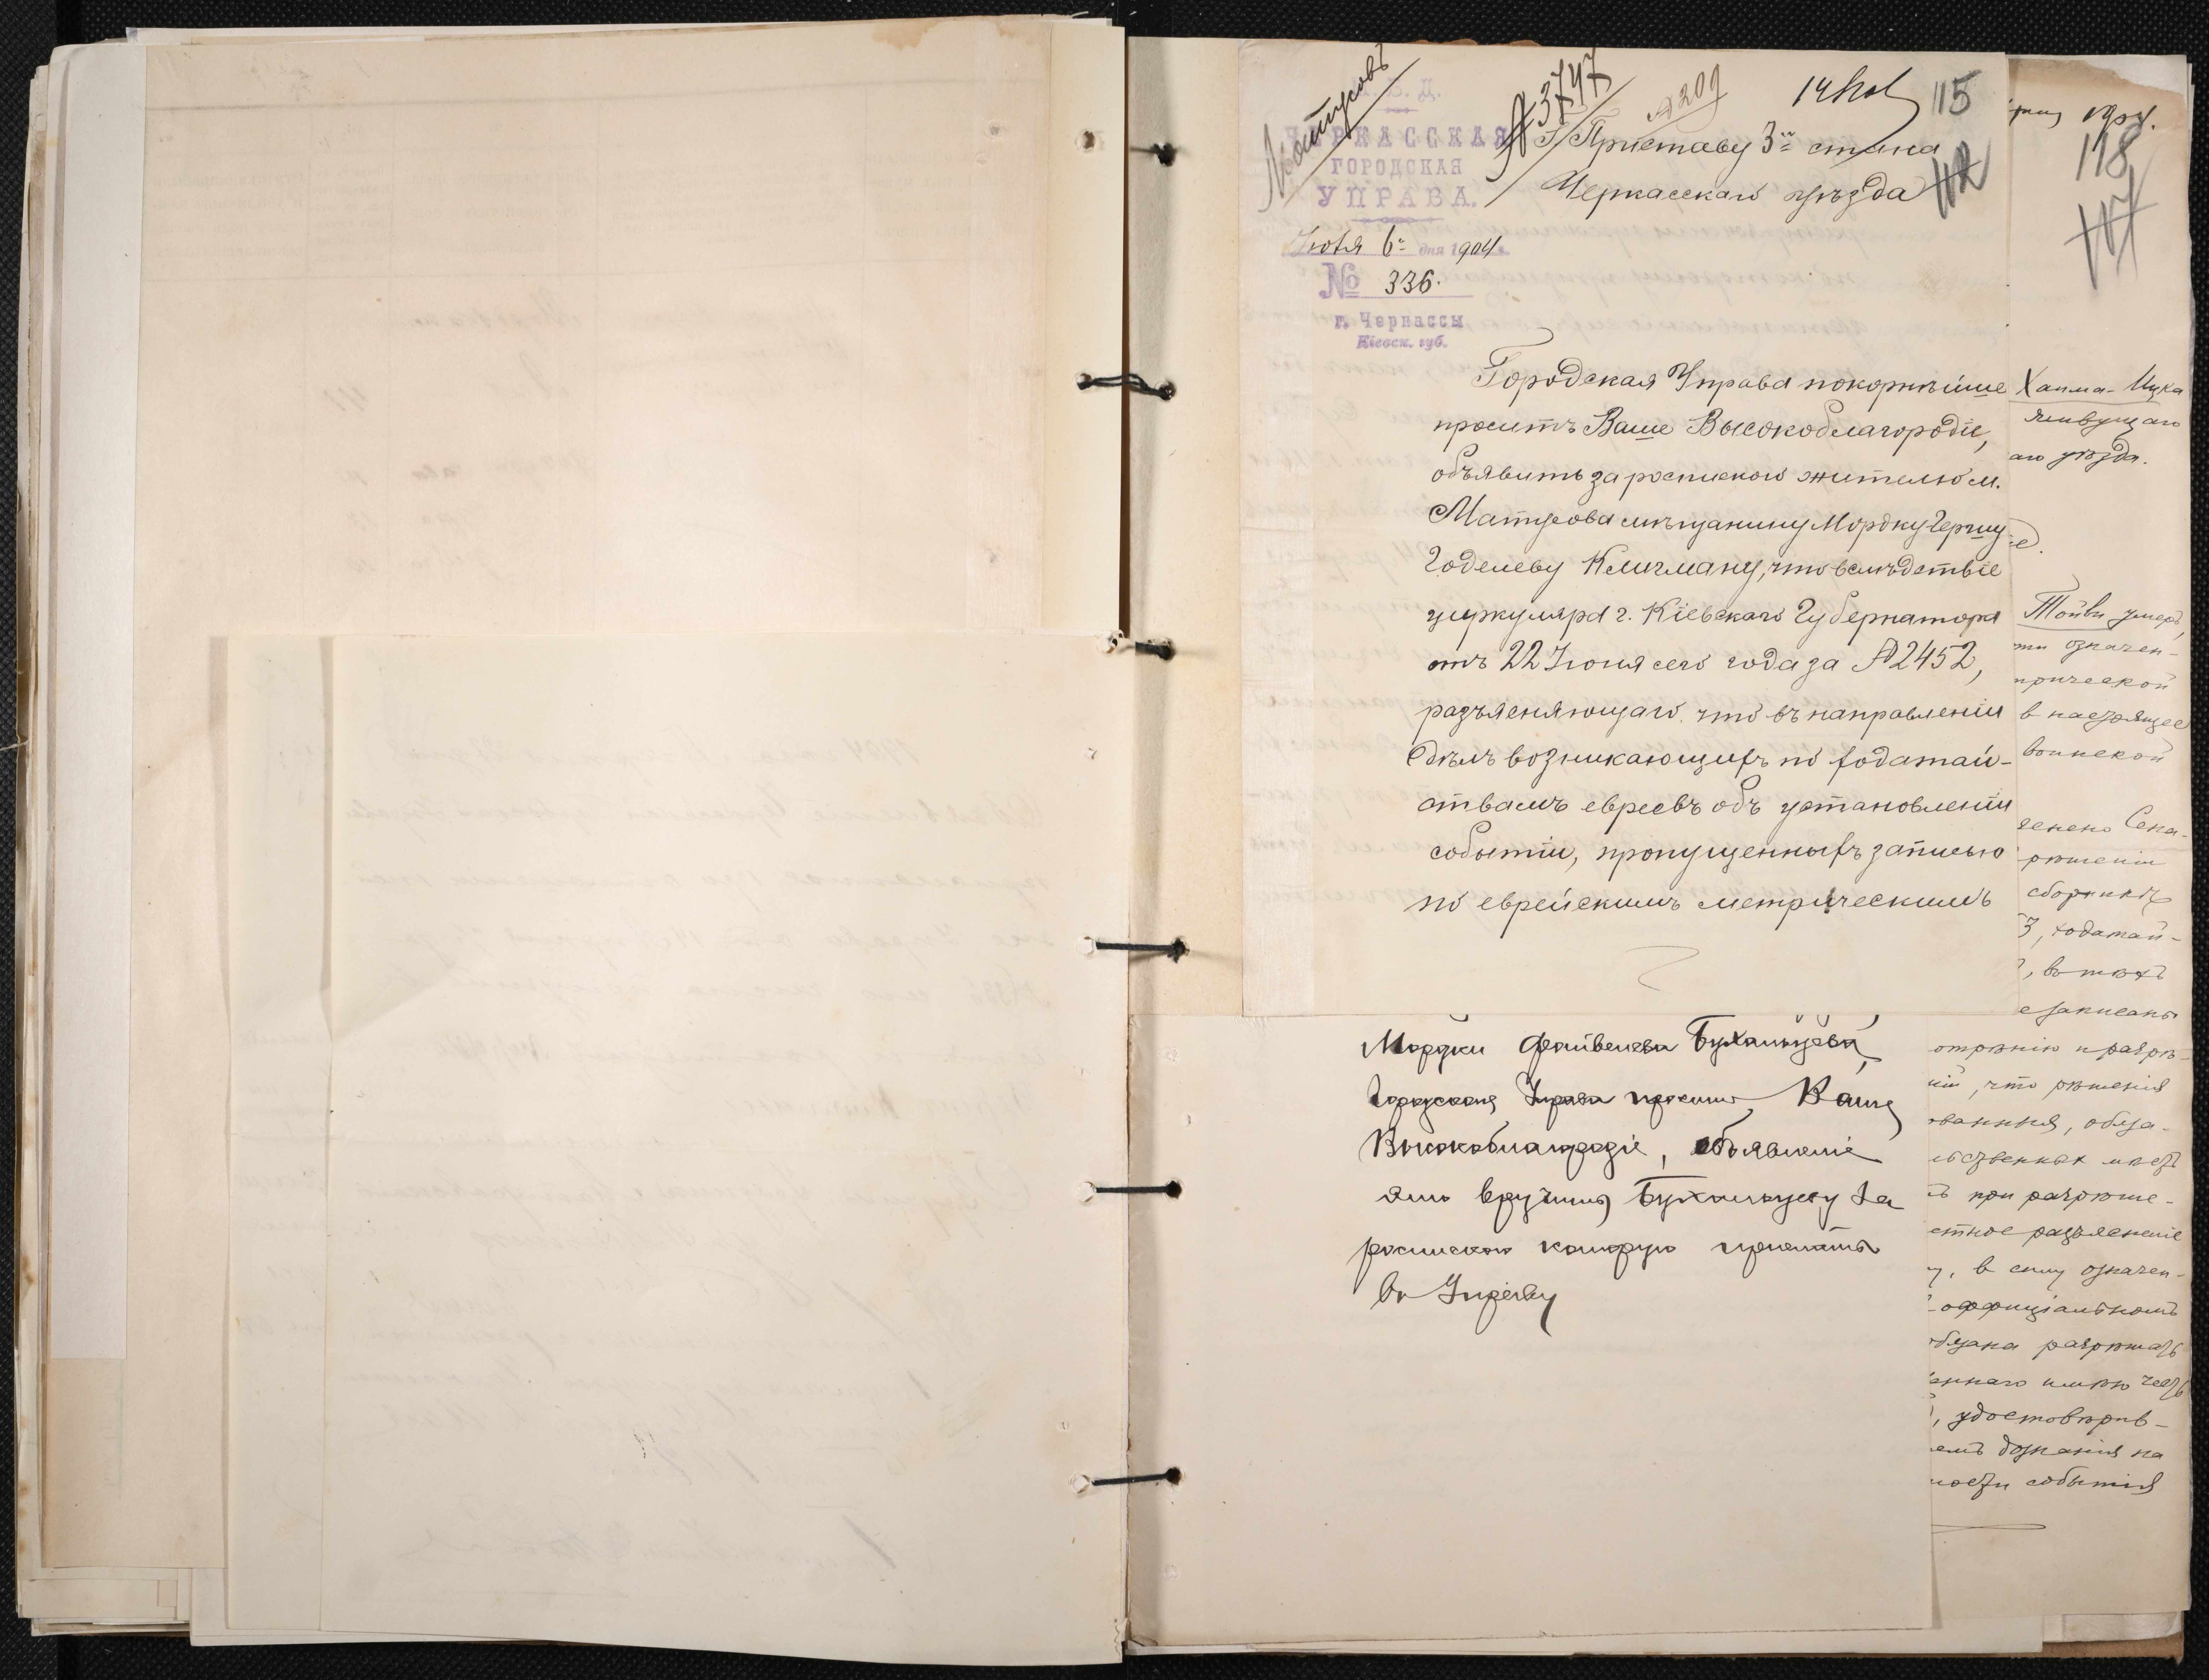 Матусовъ
№ 3747
№ 209
14 Іюл
115
112
М. В. Д.
ЧЕРКАССКАЯ
ГОРОДСКАЯ
УПРАВА.
Іюля 6го дня 1904 г.
№ 336.
г. Черкассы
Кіевск. губ.
Г. Приставу 3го стана
Черкасскаго уѣзда
Городская Управа покорнѣйше
проситъ Ваше Высокоблагородіе,
объявить за роспискою жителю м.
Матусова мѣщанину Мордку Гершу
Годелеву Клигману, что вслѣдствіе
циркуляра г. Кіевскаго Губернатора
отъ 22 Іюня сего года за № 2452,
разъясняющаго что въ направленіи
дѣлъ возникающихъ по ходатай-
ствамъ евреевъ объ установленіи
событіи, пропущенныхъ записью
по еврейскимъ метрическимъ
Мордки Файвелева Бухальцева,
Городская Управа проситъ Ваше
Высокоблагородіе, объявленіе
вручить Бухальцеву за
роспискою которую прислать
въ Управу
1904.
118
107
Хаима-Ицка
живущаго
аго уѣзда.
Тойви умеръ,
ти означен-
трической
в настоящее
воинской
Сена-
рѣшеніи
сборникѣ
3, ходатай-
, въ тѣхъ
е записаны
отрѣнію и разрѣ-
ніи, что рѣшенія
ованныя, обяза-
льственных мѣстъ
ъ при разрѣше-
стное разъясненіе
у, в силу означен-
оффиціальномъ
обязана разрѣшать
еннаго имѣю честь
, удостовѣрив-
емъ дознанія на
ности событія